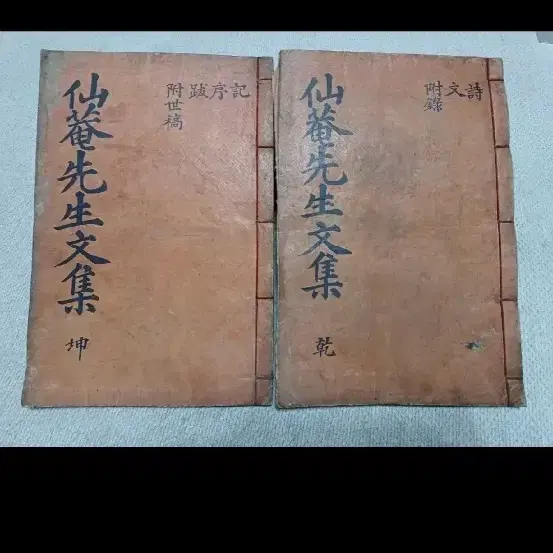 仙菴先生文集
乾
詩文
附錄
仙菴先生文集
坤
記序跋
附世稿